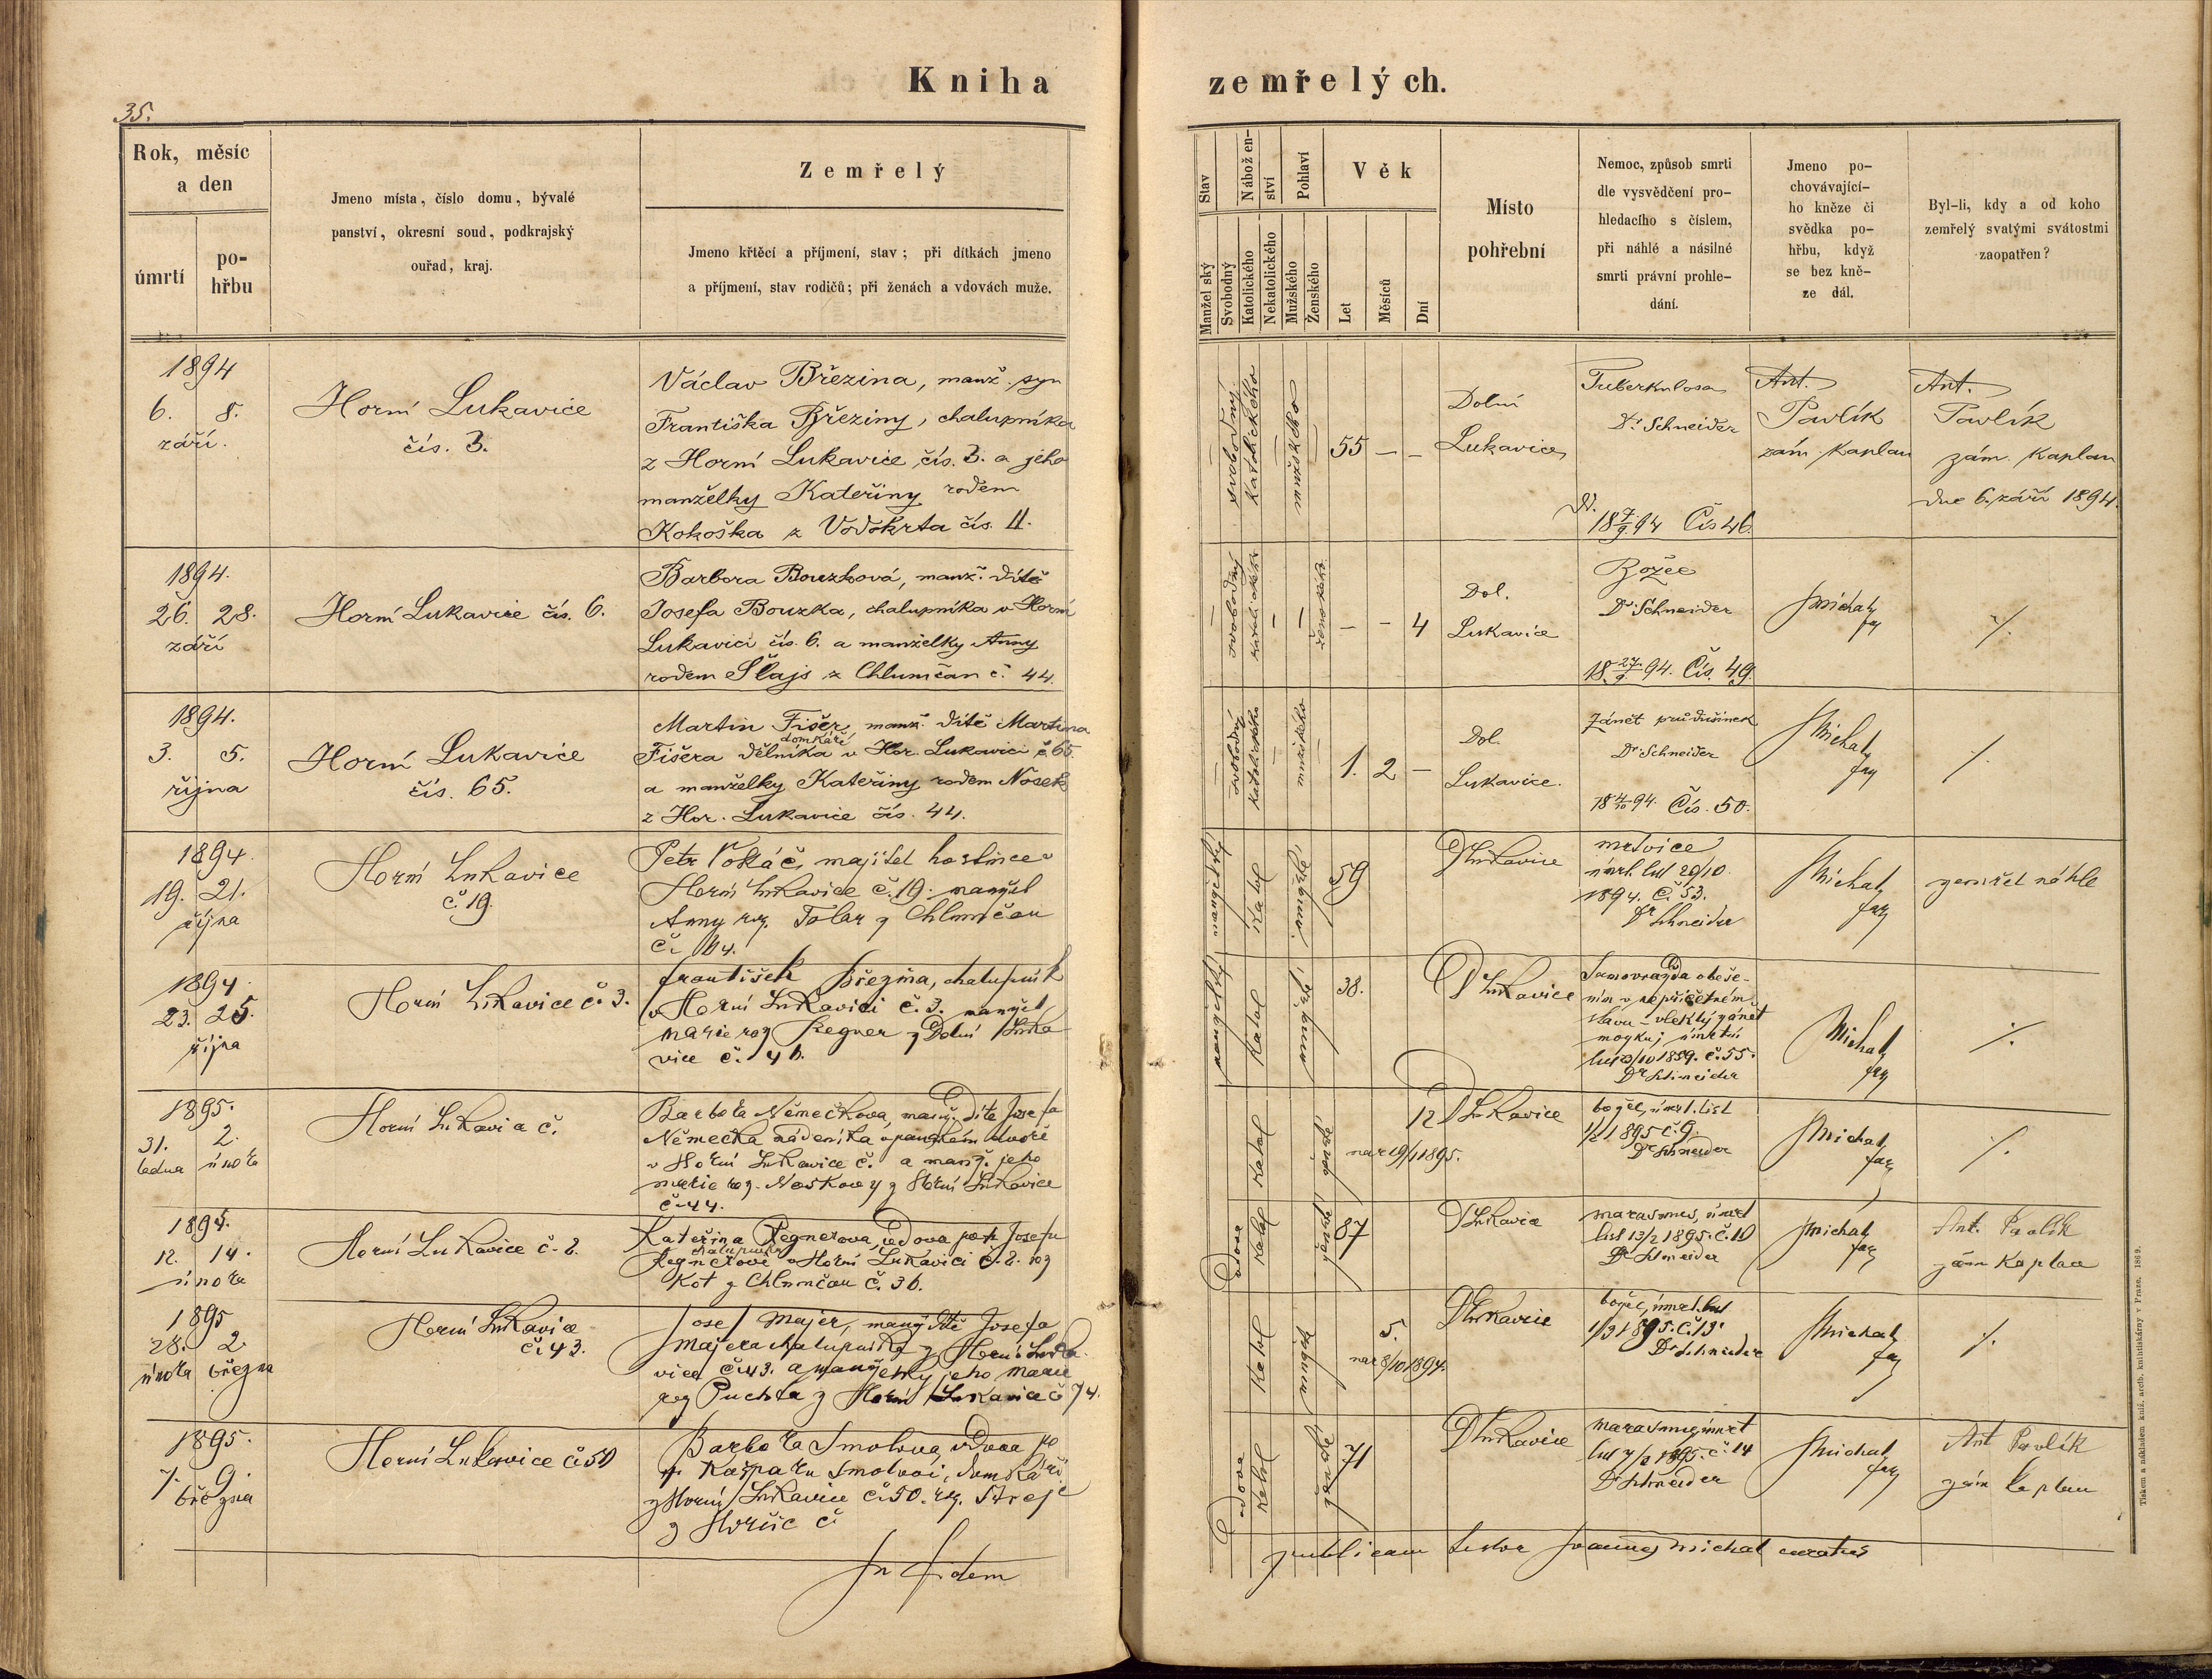 Kniha zemřelých.
35.
Rok, měsíc
a den
úmrtí
po-
hřbu
Jmeno místa, číslo domu, bývalé
panství, okresní soud, podkrajský
ouřad, kraj.
Zemřelý
Jmeno křtěcí a příjmení, stav; při dítkách jmeno
a příjmení, stav rodičů; při ženách a vdovách muže.
Stav
Manželský
Svobodný
Nábožen-
ství
Katolického
Nekatolického
Pohlaví
Mužského
Ženského
Věk
Let
Měsíců
Dní
Místo
pohřební
Nemoc, způsob smrti
dle vysvědčení pro-
hledacího s číslem,
při náhlé a násilné
smrti právní prohle-
dání.
Jmeno po-
chovávající-
ho kněze či
svědka po-
hřbu, když
se bez kně-
ze dál.
Byl-li, kdy a od koho
zemřelý svatými svátostmi
zaopatřen?
1894
6. 8.
září.
Horní Lukavice
čís. 3.
Václav Březina, manž. syn
Františka Březiny, chalupníka
z Horní Lukavice čís. 3. a jeho
manželky Kateřiny rodem
Kokoška z Vodokrta čís. 11.
svobodný
Katolického
mužského
55 – –
Dolní
Lukavice
Tuberkulosa
Dr. Schneider
18 7/9 94 Čís 46.
Ant.
Pavlík
zám. kaplan
Ant.
Pavlík
zám. kaplan
dne 6. září 1894.
1894.
26. 28.
září
Horní Lukavice čís. 6.
Barbora Bouzková, manž. dítě
Josefa Bouzka, chalupníka v Horní
Lukavici čís. 6. a manželky Anny
rodem Šlajs z Chlumčan č. 44.
svobodný
– – 4
Dol.
Lukavice
Božec
Dr. Schneider
18 27/9 94. Čís. 49.
JMichal
far
%.
1894.
3. 5.
října
Horní Lukavice
čís. 65.
Martin Fišer, manž. dítě Martina
domkáře
Fišera dělníka v Hor. Lukavici č 65.
a manželky Kateřiny rodem Nosek
z Hor. Lukavice čís. 44.
svobodný
katolického
mužského
1. 2 –
Dol.
Lukavice.
Zánět průdušinek
Dr. Schneider
18 4/10 94. Čís. 50.
JMichal
far
%.
1894.
19. 21.
října
Horní Lukavice
č. 19.
Petr Vokáč, majitel hostince v
Horní Lukavice č. 19. manžel
Anny roz. Tolar z Chlumčan
manželský
Katol
59
DLukavice
mrtvice
úmrt. list 20/10.
1894. č. 53.
Dr Schneider
JMichal
far
zemřel náhle
1894.
23. 25.
října
Horní Lukavice č. 3.
František Březina, chalupník
v Horní Lukavici č. 3. manžel
Marie roz Regner z Dolní Luka
vice č. 46.
manželský
Katol
38.
DLukavice
Samovražda oběše-
ním v nepříčetném
stavu – vleklý zánět
mozku; úmrtní
list 23/10 1859. č. 55.
Dr Schneider
JMichal
far
%.
1895.
31. 2.
ledna února
Horní Lukavice č.
Barbora Němečkova, manž. dítě Josefa
Němečka nádeníka v panském dvoře
v Horní Lukavice č. a manž. jeho
Marie roz. Noskovy z Horní Lukavice
č. 44.
Katol
ženské
12
nar 19/1 1895.
DLukavice
božec, úmrt. list
1/2 1895 č. 9.
Dr Schneider
JMichal
far
%.
1895.
12. 14.
února
Horní Lukavice č. 2.
Kateřina Regnerova, vdova po † Josefu
chalupníku
Regnerovi v Horní Lukavici č. 2. roz
Kot z Chlumčan č. 36.
vdova
Katol
ženské
87
DLukavice
marasmus, úmrt
list 13/2 1895. č. 10
Dr Schneider
JMichal
far
Ant. Pavlík
zám kaplan
1895
28. 2.
února března
Horní Lukavice
č. 43.
Josef Majer, manž dítě Josefa
Majera chalupníka z Horní Luka
vice č. 43. a manželky jeho Marie
roz Puchta z Horní Lukavice č 74.
Katol
mužské
5.
nar 8/10 1894.
DLukavice
božec, úmrt. list
1/3 1895. č. 13.
Dr Schneider
JMichal
far
%.
1895.
7. 9.
března
Horní Lukavice č. 50
Barbora Smolova, vdova po
† Kašparu Smolovi, domkáři
z Horní Lukavice č. 50. roz. Strejc
z Horšic č.
vdova
Katol
ženské
71
DLukavice
marasmus, úmrt
list 7/3 1895. č. 14
Dr Schneider
JMichal
far
Ant Pavlík
zám kaplan
In fidem publicam testor Joannes Michal curatus
Tiskem a nákladem kníž. arcib. knihtiskárny v Praze. 1869.